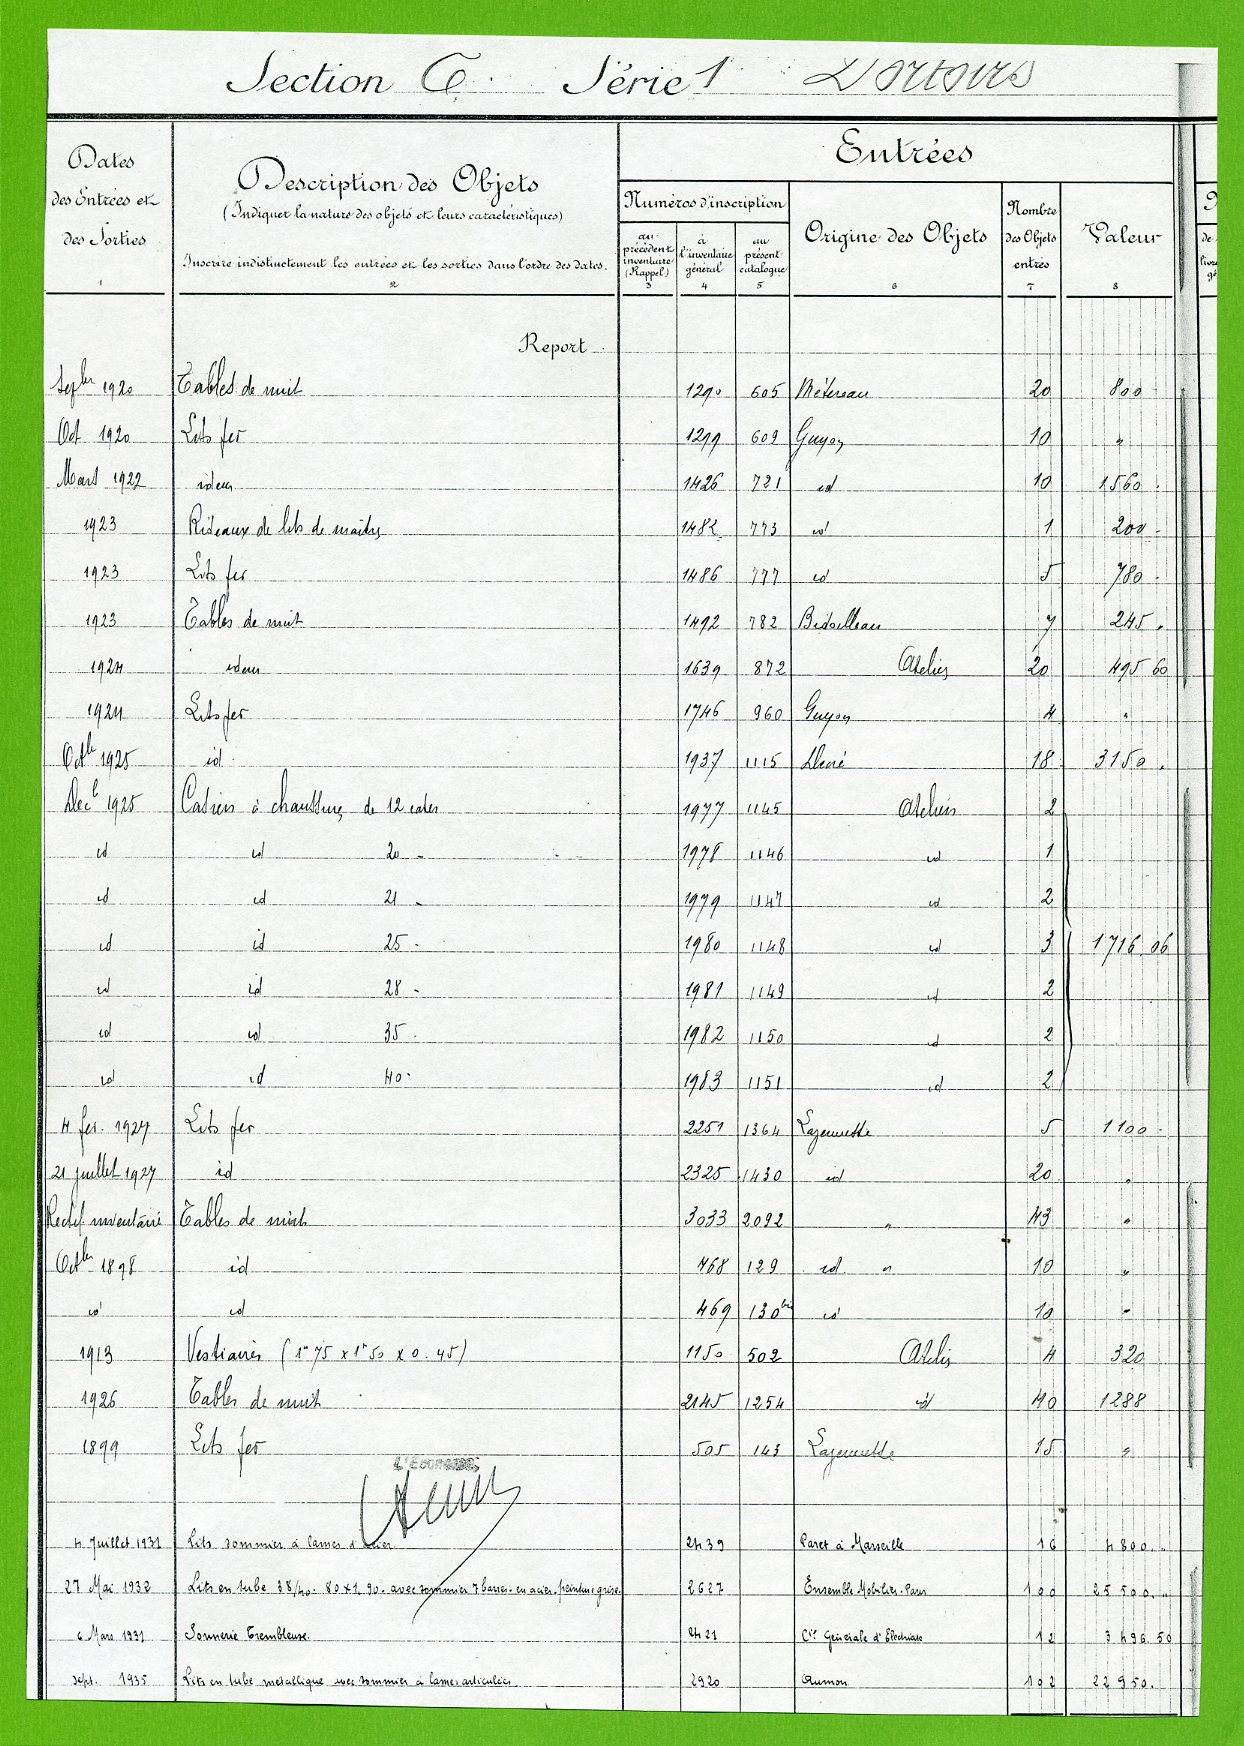 Section C. Série 1 Dortoirs
Dates des Entrées et des Sorties
Description des Objets
(Indiquer la nature des objets et leurs caractéristiques)
Inscrire indistinctement les entrées et les sorties dans l'ordre des dates.
Entrées
Numéros d'inscription
au précédent inventaire (Rappel)
à l'inventaire général
au présent catalogue
Origine des Objets
Nombre des Objets entrés
Valeur
1 2 3 4 5 6 7 8
Report
Sepbre 1920 Tables de nuit 1290 605 Métereau 20 800 -
Oct 1920 Lits fer 1299 609 Guyon 10 "
Mars 1922 idem 1426 721 id 10 1560 -
1923 Rideaux de lits de maitres 1482 773 id 1 200 -
1923 Lits fer 1486 777 id 5 780 -
1923 Tables de nuit 1492 782 7 245 .
1924 idem 1639 872 Atelier 20 495 60
1924 Lits fer 1746 960 Guyon 4 "
Octbre 1925 id 1937 1115 18 3150 .
Dec 1925 Casiers à chaussures de 12 cases 1977 1145 Ateliers 2
id id 20 - 1978 1146 id 1
id id 21 - 1979 1147 id 2
id id 25 - 1980 1148 id 3 1716 06
id id 28 - 1981 1149 id 2
id id 35 - 1982 1150 id 2
id id 40 - 1983 1151 id 2
4 fev. 1927 Lits fer 2251 1364 5 1100 -
21 juillet 1927 id 2325 1430 id 20 "
Rectif. inventaire Tables de nuit 3033 2092 " 43 "
Octbre 1898 id 468 129 id " 10 "
id id 469 130 bis id 10 "
1913 Vestiaires (1m75 x 1m50 x 0.45) 1150 502 Atelier 4 320
1926 Tables de nuit 2145 1254 id 40 1288
1899 Lits fer 505 143 15 "
L'Econome,
4 Juillet 1931 Lits sommier à lames d'acier 2439 Paret à Marseille 16 4800. "
27 Mai 1932 Lits en tube 38/40. 80x1.90. avec sommier 7 barres en acier. peinture grise. 2627 Ensemble Mobilier. Paris 100 25500. "
6 Mars 1931 Sonnerie Trembleuse. 2421 Cie Générale d' 12 3496. 50
sept. 1935 Lits en tube métallique avec sommier à lames articulées 2920 Aumon 102 22950.